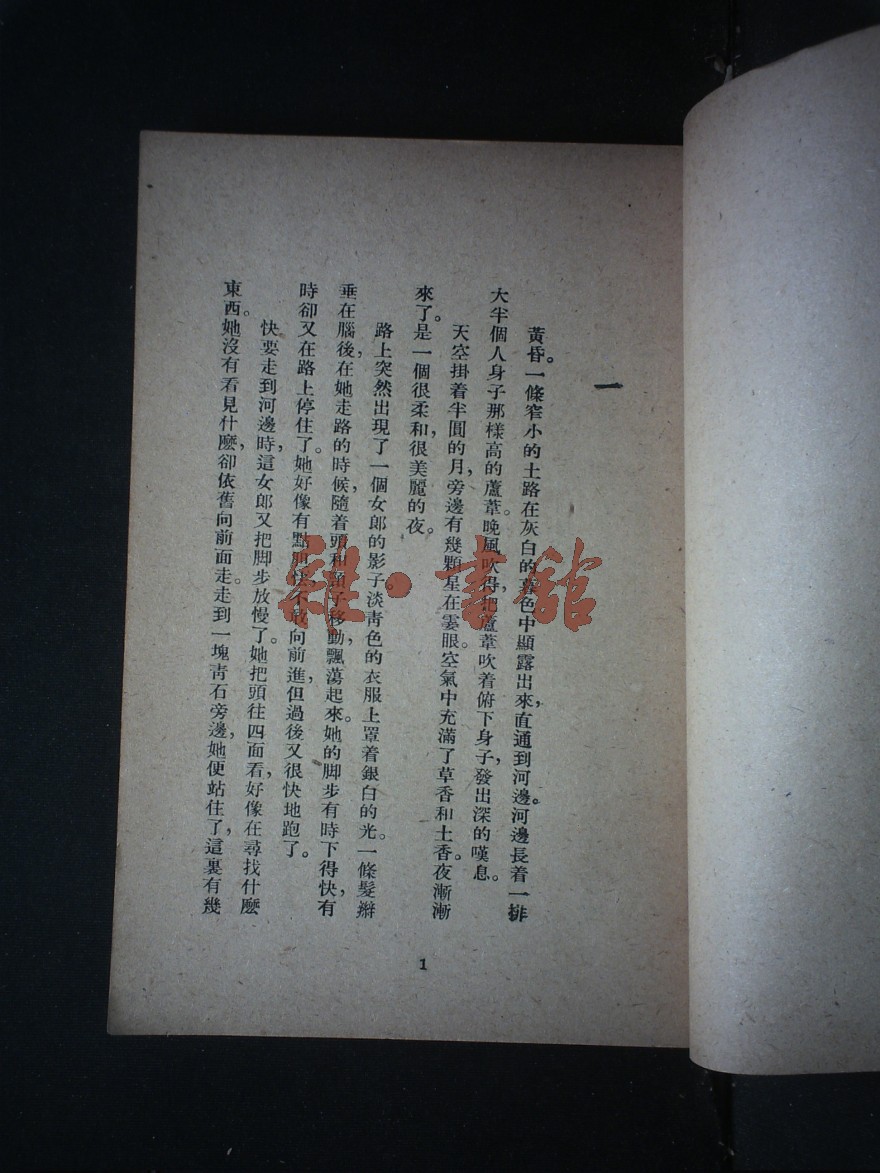 一
黃昏。一條窄小的土路在灰白的暮色中顯露出來，直通到河邊。河邊長着一排
大半個人身子那樣高的蘆葦。晚風吹得把蘆葦吹着俯下身子，發出深的嘆息。
天空掛着半圓的月，旁邊有幾顆星在霎眼。空氣中充滿了草香和土香。夜漸漸
來了。是一個很柔和，很美麗的夜。
路上突然出現了一個女郎的影子。淡青色的衣服上罩着銀白的光。一條髮辮
垂在腦後，在她走路的時候，隨着頭和頸子移動飄蕩起來。她的脚步有時下得快，有
時卻又在路上停住了。她好像有點胆怯，不敢向前進，但過後又很快地跑了。
快要走到河邊時，這女郎又把脚步放慢了。她把頭往四面看，好像在尋找什麼
東西。她沒有看見什麼，卻依舊向前面走。走到一塊青石旁邊，她便站住了，這裏有幾
1
雜·書館